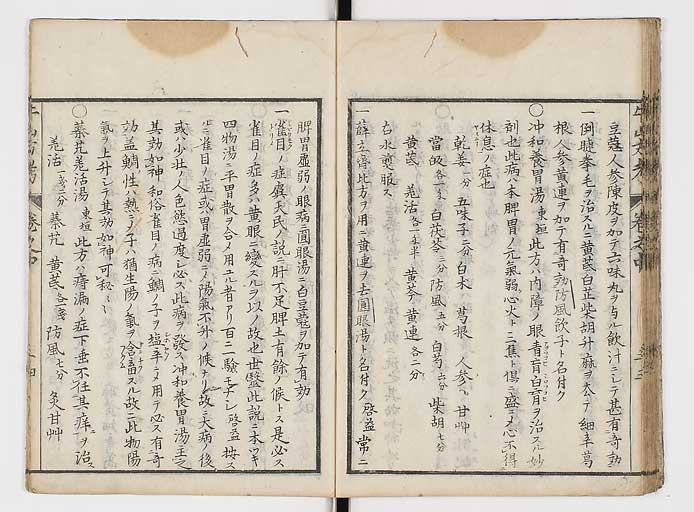 豆蔻人参陳皮ヲ加テ六味丸ヲ与ル飲汁ニシテ甚有奇効
一倒睫拳毛ヲ治スルニ黄芪白芷柴胡升麻ヲ去テ細辛葛
根人参黄連ヲ加テ有奇効防風飲子ト名付ク
〇冲和養胃湯 東垣 此方ハ内障ノ眼青盲白盲ヲ治スル妙
剤也此病ハ本脾胃ノ元氣弱心火ト三焦ト倶ニ盛ニメ心不得
休息ノ症也
乾姜一分 五味子二分 白朮 葛根 人参 甘艸
當皈各一戔 白茯苓三分 防風五分 白芍六分 柴胡七分
黄芪 羌活各一戔半 黄芩 黄連各二分
右水煎服ス
一薛立齋此方ヲ用ニ黄連ヲ去圓眼湯ト名付ク 啓益 常ニ
脾胃虚弱ノ眼病ニ圓眼湯ニ白豆蔻ヲ加テ有効
一雀目ノ症虞天民ノ説ニ肝不足脾土有餘ノ候トス是必ス
雀目ノ症多ハ黄眼ニ變スルヲ以ノ故也世醫此説ニ本ツキ
四物湯ニ平胃散ヲ合メ用ユル者アリ百ニ一驗モナシ 啓益 按ス
ルニ雀目ノ症或ハ胃虚弱ニメ陽氣不升ノ候ナリ故ニ大病ノ後
或ハ少壮ノ人色慾過度必ス此病ヲ發ス冲和養胃湯主之
其効如神和俗雀目ノ病ニ鯛ノ子ヲ塩辛ニメ用テ必ス有奇
効盖鯛性ハ熱メ子ハ猶生陽ノ氣ヲ含畜スル故ニ此物陽
氣ヲ上升シテ其効如神可秘ニ
〇蓁艽羌活湯 東垣 此方ハ痔漏ノ症下垂不任其痒ヲ治ス
羌活一戔二分 蓁艽 黄芪各一戔 防風七分 炙甘艸